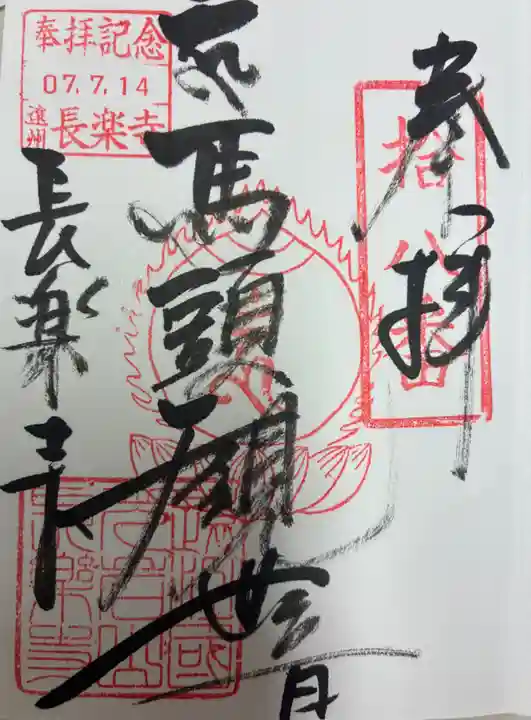 奉拝
拾八番
馬頭観世音
長楽寺
奉拝記念
07.7.14
遠州 長楽寺